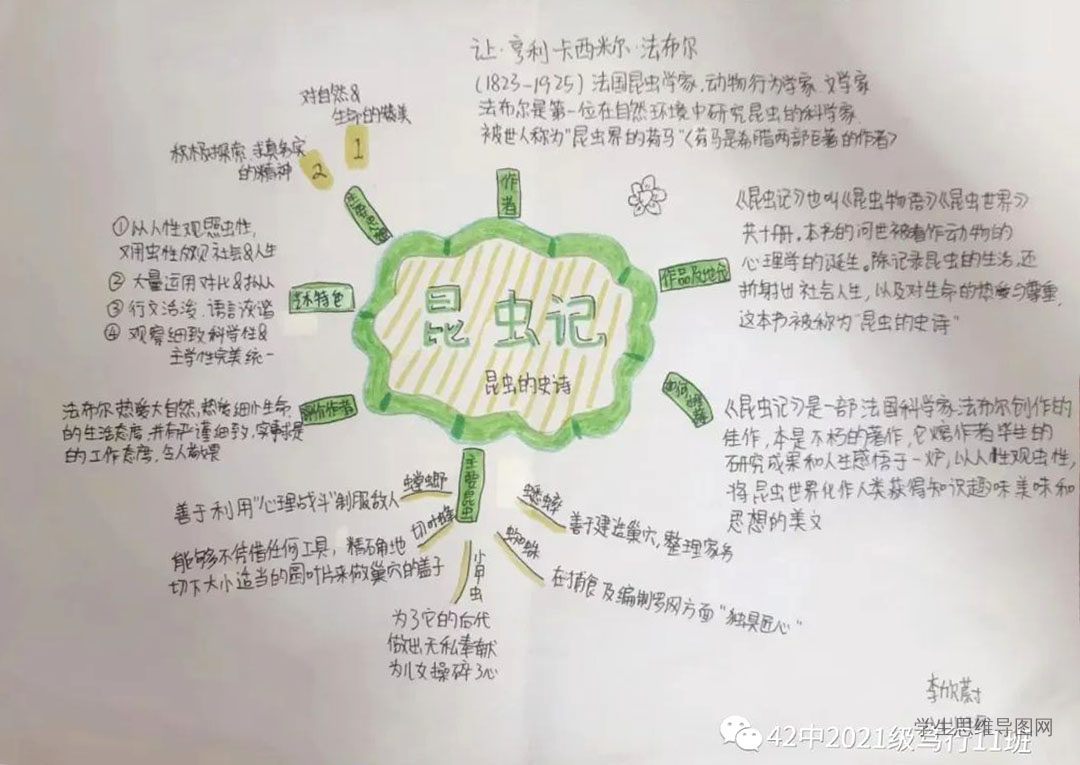 昆虫记
昆虫的史诗
作者
让·亨利卡西米尔·法布尔
(1823-1925) 法国昆虫学家,动物行为学家、文学家
法布尔是第一位在自然环境中研究昆虫的科学家,
被世人称为"昆虫界的荷马"《荷马是希腊两部巨著的作者》
作品及地位
《昆虫记》也叫《昆虫物语》《昆虫世界》
共十册。本书的问世被看作动物的
心理学的诞生。除记录昆虫的生活,还
折射出社会人生,以及对生命的热爱与尊重,
这本书被称为"昆虫的史诗"
《昆虫记》是一部法国科学家法布尔创作的
佳作,本是不朽的著作,它熔作者毕生的
研究成果和人生感悟于一炉,以人性观虫性,
将昆虫世界化作人类获得知识趣味美味和
思想的美文
主要昆虫
蟋蟀
善于建造巢穴,整理家务
蜘蛛
在捕食及编制罗网方面"独具匠心"
小甲虫
为了它的后代
做出无私奉献
为儿女操碎了心
切叶蜂
能够不凭借任何工具,精确地
切下大小适当的圆叶片来做巢穴的盖子
螳螂
善于利用"心理战斗"制服敌人
评价作者
法布尔热爱大自然,热爱细小生命
的生活态度,并有严谨细致,实事求是
的工作态度,令人敬畏
艺术特色
①从人性观照虫性,
又用虫性反观社会&人生
② 大量运用对比&拟人
③ 行文活泼、语言诙谐
④ 观察细致科学性&
文学性完美统一
1
对自然&
生命的赞美
2
积极探索,求真务实
的精神
李欣蔚
学生思维导图网
42中2021级笃行11班